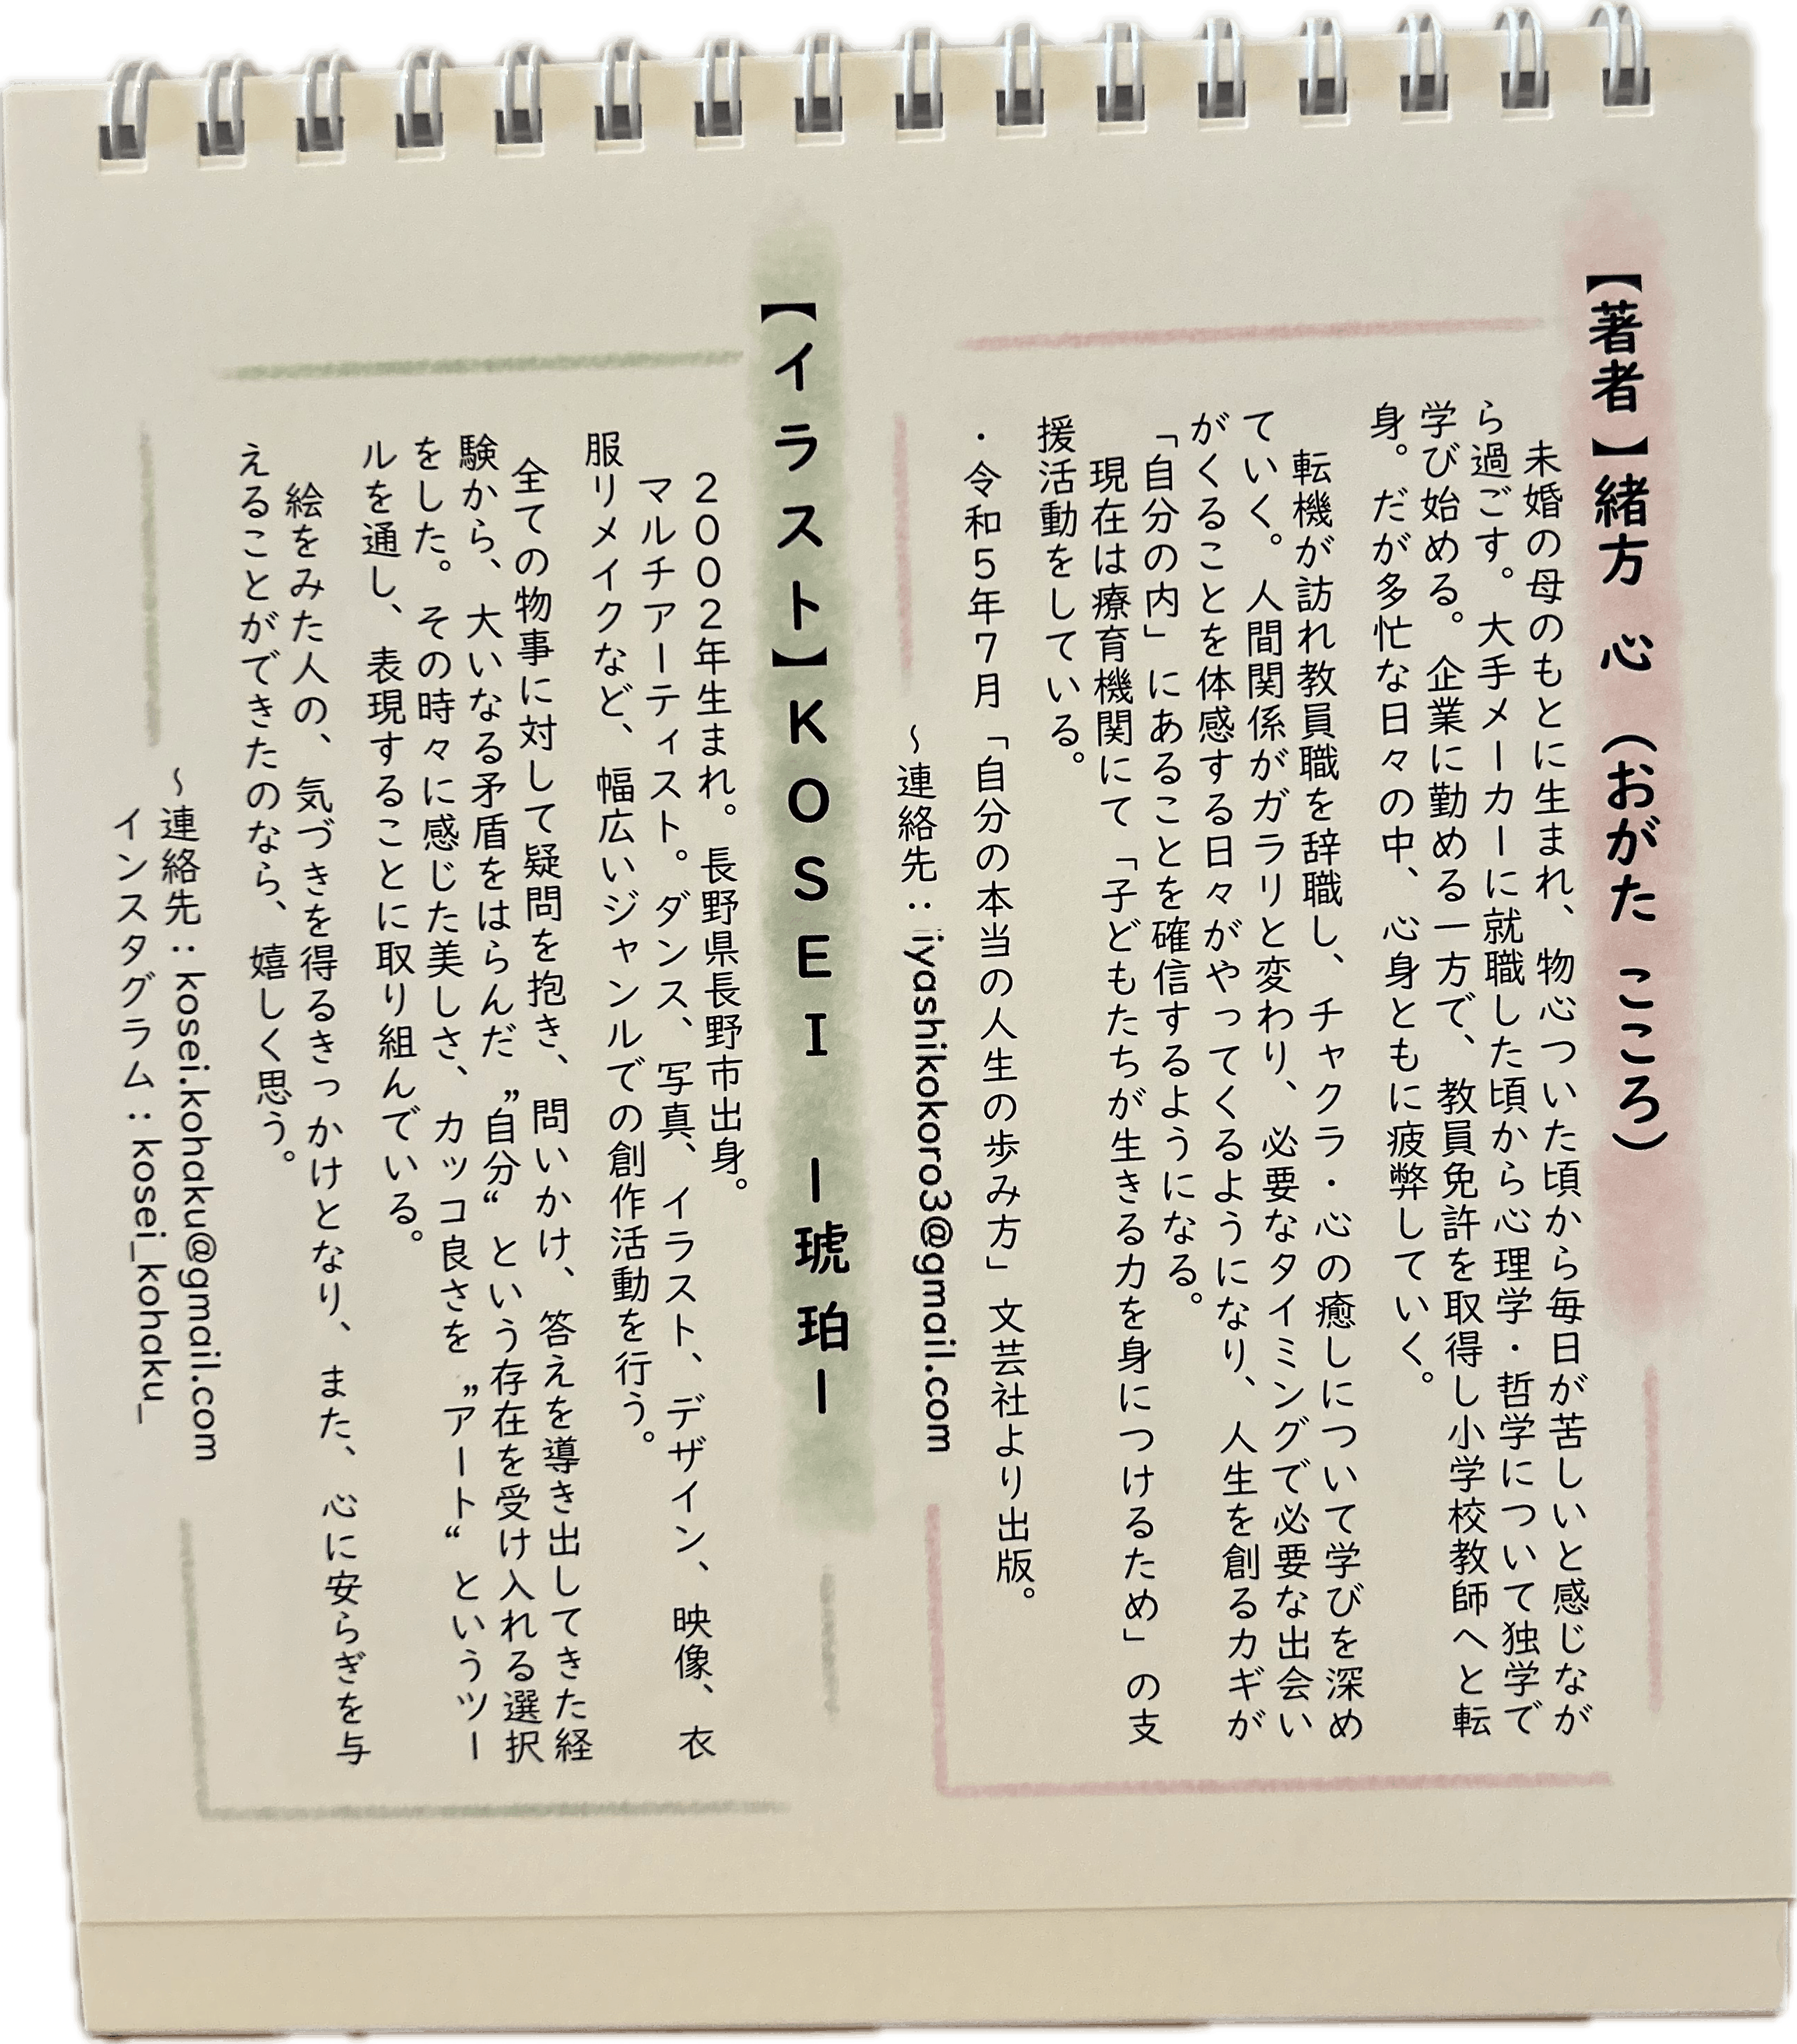 【著者】緒方 心 （おがた こころ）
未婚の母のもとに生まれ、物心ついた頃から毎日が苦しいと感じなが
ら過ごす。大手メーカーに就職した頃から心理学・哲学について独学で
学び始める。企業に勤める一方で、教員免許を取得し小学校教師へと転
身。だが多忙な日々の中、心身ともに疲弊していく。
転機が訪れ教員職を辞職し、チャクラ・心の癒しについて学びを深め
ていく。人間関係がガラリと変わり、必要なタイミングで必要な出会い
がくることを体感する日々がやってくるようになり、人生を創るカギが
「自分の内」にあることを確信するようになる。
現在は療育機関にて「子どもたちが生きる力を身につけるため」の支
援活動をしている。
・令和5年7月「自分の本当の人生の歩み方」文芸社より出版。
～連絡先：iyashikokoro3@gmail.com
【イラスト】KOSEI ー琥珀ー
2002年生まれ。長野県長野市出身。
マルチアーティスト。ダンス、写真、イラスト、デザイン、映像、衣
服リメイクなど、幅広いジャンルでの創作活動を行う。
全ての物事に対して疑問を抱き、問いかけ、答えを導き出してきた経
験から、大いなる矛盾をはらんだ”自分“という存在を受け入れる選択
をした。その時々に感じた美しさ、カッコ良さを”アート“というツー
ルを通し、表現することに取り組んでいる。
絵をみた人の、気づきを得るきっかけとなり、また、心に安らぎを与
えることができたのなら、嬉しく思う。
～連絡先：kosei.kohaku@gmail.com
インスタグラム：kosei_kohaku_